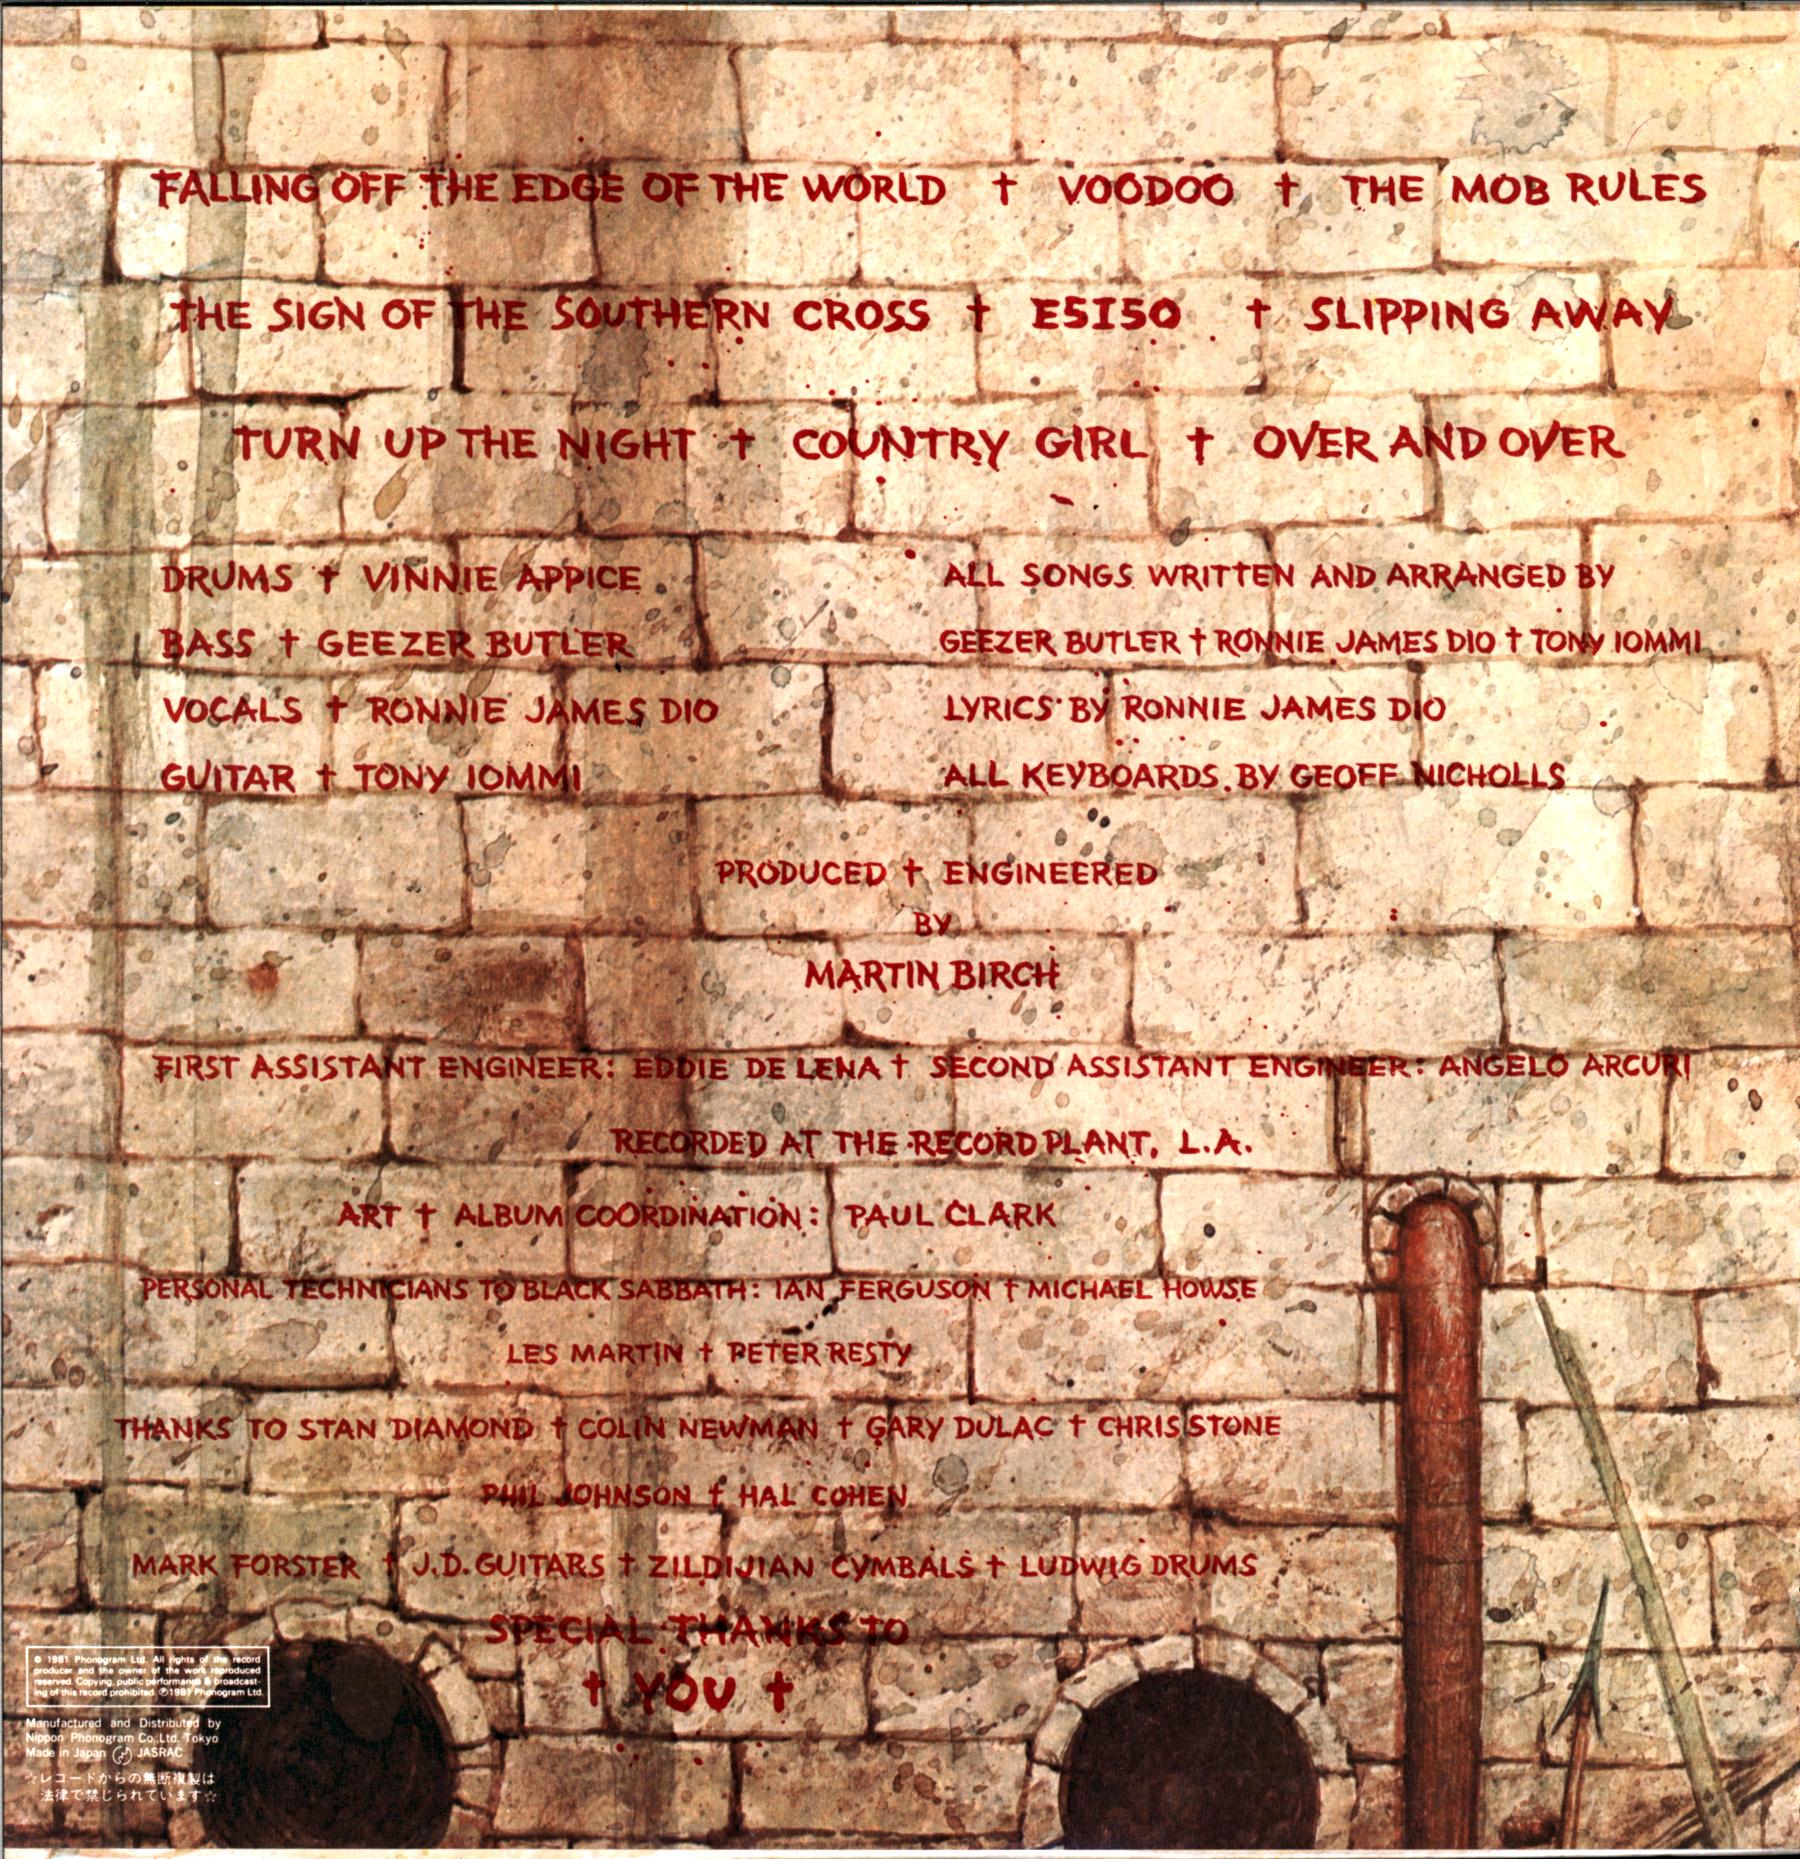 FALLING OFF THE EDGE OF THE WORLD † VOODOO † THE MOB RULES
THE SIGN OF THE SOUTHERN CROSS † E5150 † SLIPPING AWAY
TURN UP THE NIGHT † COUNTRY GIRL † OVER AND OVER
DRUMS † VINNIE APPICE
BASS † GEEZER BUTLER
VOCALS † RONNIE JAMES DIO
GUITAR † TONY IOMMI
ALL SONGS WRITTEN AND ARRANGED BY
GEEZER BUTLER † RONNIE JAMES DIO † TONY IOMMI
LYRICS BY RONNIE JAMES DIO
ALL KEYBOARDS BY GEOFF NICHOLLS
PRODUCED † ENGINEERED
BY
MARTIN BIRCH
FIRST ASSISTANT ENGINEER: EDDIE DE LENA † SECOND ASSISTANT ENGINEER: ANGELO ARCURI
RECORDED AT THE RECORD PLANT, L.A.
ART † ALBUM COORDINATION: PAUL CLARK
PERSONAL TECHNICIANS TO BLACK SABBATH: IAN FERGUSON † MICHAEL HOWSE
LES MARTIN † PETER RESTY
THANKS TO STAN DIAMOND † COLIN NEWMAN † GARY DULAC † CHRIS STONE
PHIL JOHNSON † HAL COHEN
MARK FORSTER † J.D. GUITARS † ZILDIJIAN CYMBALS † LUDWIG DRUMS
SPECIAL THANKS TO
† YOU †
© 1981 Phonogram Ltd. All rights of the record
producer and the owner of the work reproduced
reserved. Copying, public performance & broadcast-
ing of this record prohibited. ℗1981 Phonogram Ltd.
Manufactured and Distributed by
Nippon Phonogram Co.,Ltd. Tokyo
Made in Japan JASRAC
☆レコードからの無断複製は
法律で禁じられています☆